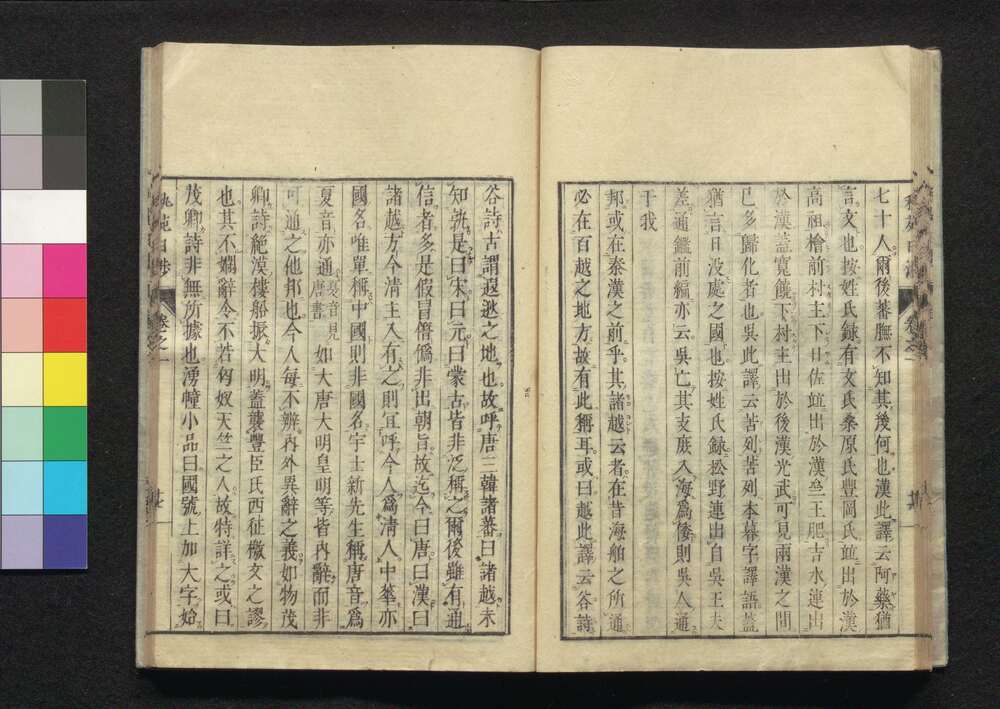 七十人爾後蕃膴不知其後何也漢此譯云阿藥猶
言文也按姓氏録有文氏桑原氏豐岡氏竝出於漢
高祖檜前村主下日佐竝出於漢亝王肥吉水連出
於漢蓋寬饒下村主出於後漢光武可見兩漢之間
已多歸化者也吳此譯云苦列苦列本暮字譯語蓋
猶言日没處之國也按姓氏録松野連出自吳王夫
差通鑑前編亦云吳亡其支庻入海爲倭則吳人通
于我
邦或在秦漢之前乎其諸越云者在昔海舶之所通
必在百越之地方故有此稱耳或曰越此譯云谷詩
谷詩古謂遐逖之地也故呼唐三韓諸蕃曰諸越未
知孰是曰宋曰元曰蒙古皆非泛稱之爾後雖有通
信者多是假冒僭僞非出朝旨故迄今曰唐曰漢曰
諸越方今清主入有之則宜呼今人爲清人中華亦
國名唯單稱中國則非國名宇士新先生稱唐音爲
夏音亦通夏音見唐書如大唐大明皇明等皆內辭而非
可通之他邦也今人每不辨內外異辭之義如物茂
卿詩絶漠樓船振大明蓋襲豐臣氏西征檄文之謬
也其不嫺辭令不若匈奴天竺之人故特詳之或曰
茂卿詩非無所據也湧幢小品曰國號上加大字始
卷之一